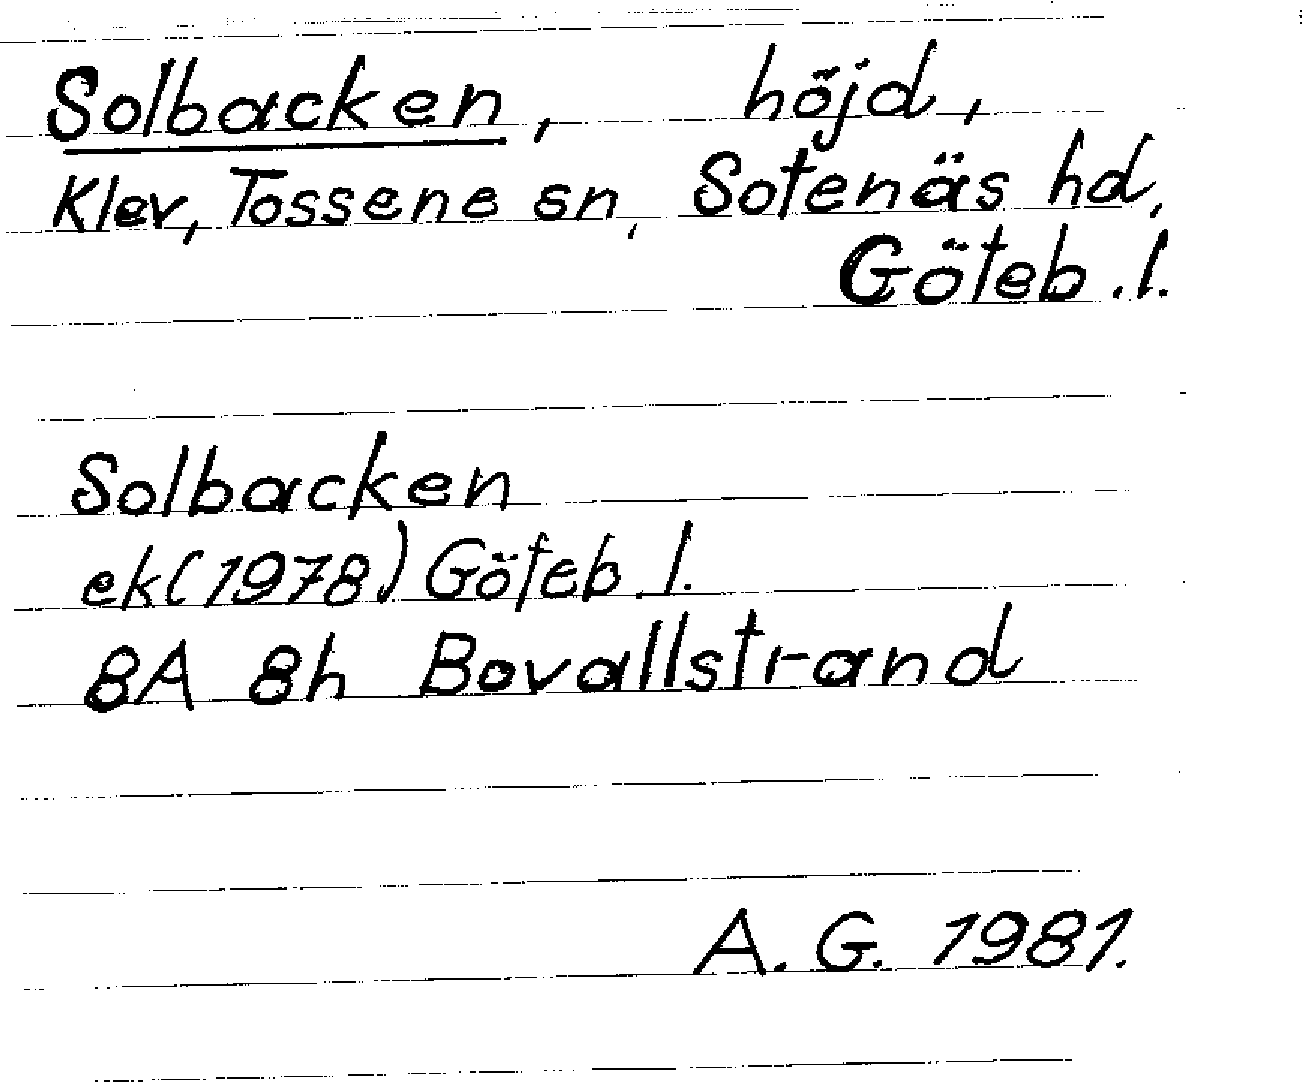 Solbacken, höjd,
Klev, Tossene sn, Sotenäs hd,
Göteb.l.
Solbacken
ek(1978) Göteb.l.
8A 8h Bovallstrand
A.G. 1981.